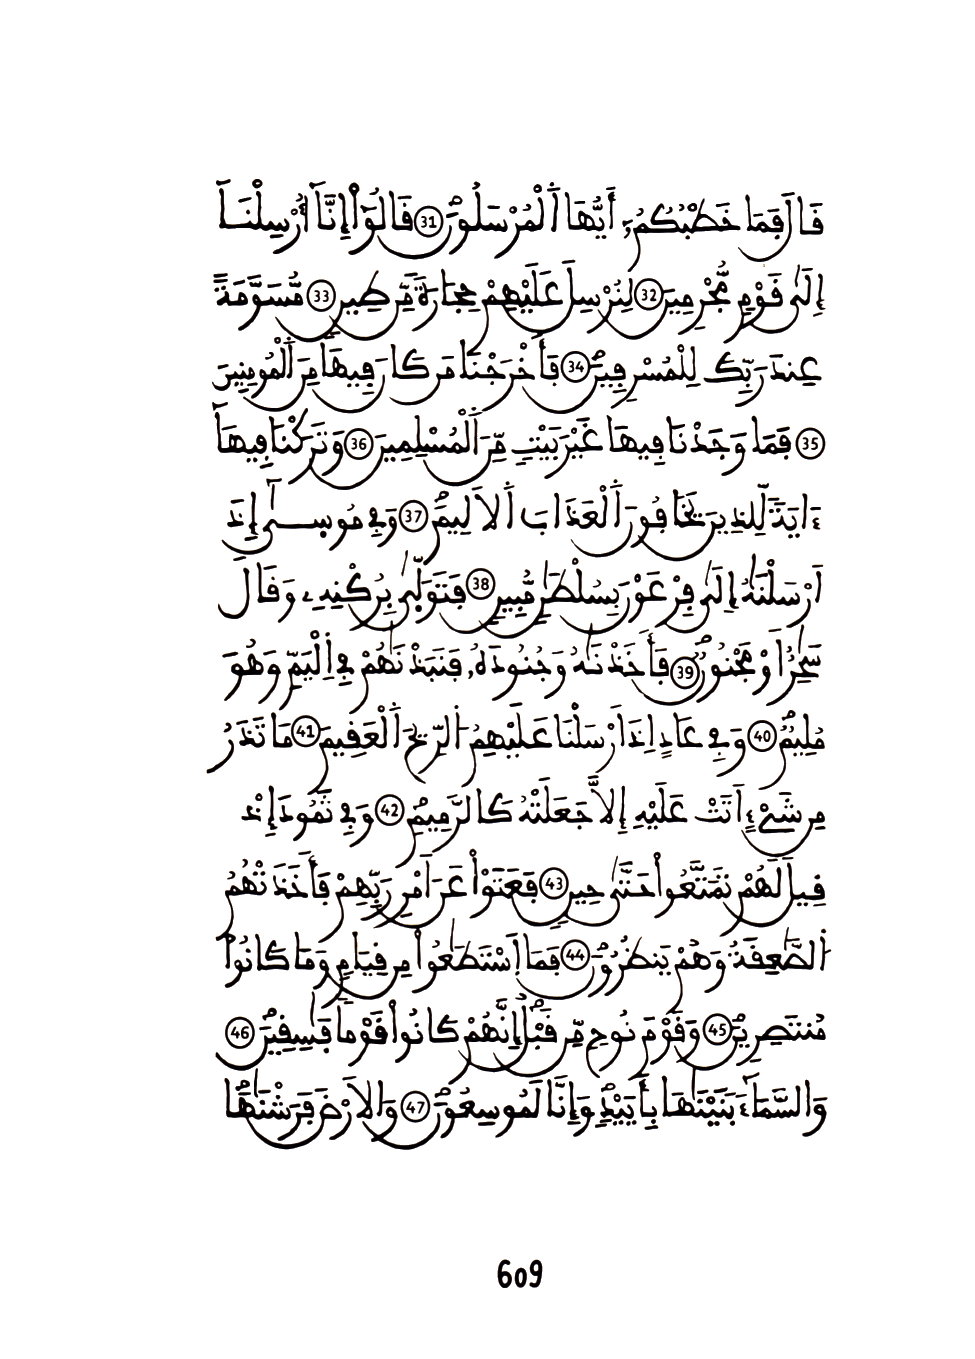 قَالَ فَمَا خَطْبُكُمُۥٓ أَيُّهَا اَ۬لْمُرْسَلُونَ 31 قَالُوٓاْ إِنَّآ أُرْسِلْنَآ
إِلَىٰ قَوْمٖ مُّجْرِمِينَ 32 لِنُرْسِلَ عَلَيْهِمْ حِجَارَةٗ مِّن طِينٖ 33 مُّسَوَّمَةً
عِندَ رَبِّكَ لِلْمُسْرِفِينَۖ 34 فَأَخْرَجْنَا مَن كَانَ فِيهَا مِنَ اَ۬لْمُومِنِينَ
35 فَمَا وَجَدْنَا فِيهَا غَيْرَ بَيْتٖ مِّنَ اَ۬لْمُسْلِمِينَ 36 وَتَرَكْنَا فِيهَآ
ءَايَةٗ لِّلذِينَ يَخَافُونَ اَ۬لْعَذَابَ اَ۬لَالِيمَۖ 37 وَفِے مُوس۪ىٰٓ إِذَ
اَرْسَلْنَٰهُ إِلَىٰ فِرْعَوْنَ بِسُلْطَٰنٖ مُّبِينٖۖ 38 فَتَوَلّ۪ىٰ بِرُكْنِهِۦ وَقَالَ
سَٰحِرٌ اَوْ مَجْنُونٞۖ 39 فَأَخَذْنَٰهُ وَجُنُودَهُۥ فَنَبَذْنَٰهُمْ فِے اِ۬لْيَمِّ وَهُوَ
مُلِيمٞۖ 40 وَفِے عَادٍ اِذَ اَرْسَلْنَا عَلَيْهِمُ اُ۬لرِّيحَ اَ۬لْعَقِيمَ 41 مَا تَذَرُ
مِن شَےْءٍ اَتَتْ عَلَيْهِ إِلَّا جَعَلَتْهُ كَالرَّمِيمِۖ 42 وَفِے ثَمُودَ إِذْ
قِيلَ لَهُمْ تَمَتَّعُواْ حَتَّىٰ حِينٖ 43 فَعَتَوْاْ عَنَ اَمْرِ رَبِّهِمْ فَأَخَذَتْهُمُ
اُ۬لصَّٰعِقَةُ وَهُمْ يَنظُرُونَۖ 44 فَمَا اَ۪سْتَطَٰعُواْ مِن قِيَامٖ وَمَا كَانُواْ
مُنتَصِرِينَۖ 45 وَقَوْمَ نُوحٖ مِّن قَبْلُۖ إِنَّهُمْ كَانُواْ قَوْماٗ فَٰسِقِينَۖ 46
وَالسَّمَآءَ بَنَيْنَٰهَا بِأَيْيْدٖۖ وَإِنَّا لَمُوسِعُونَۖ 47 وَالَارْضَ فَرَشْنَٰهَاۖ
609